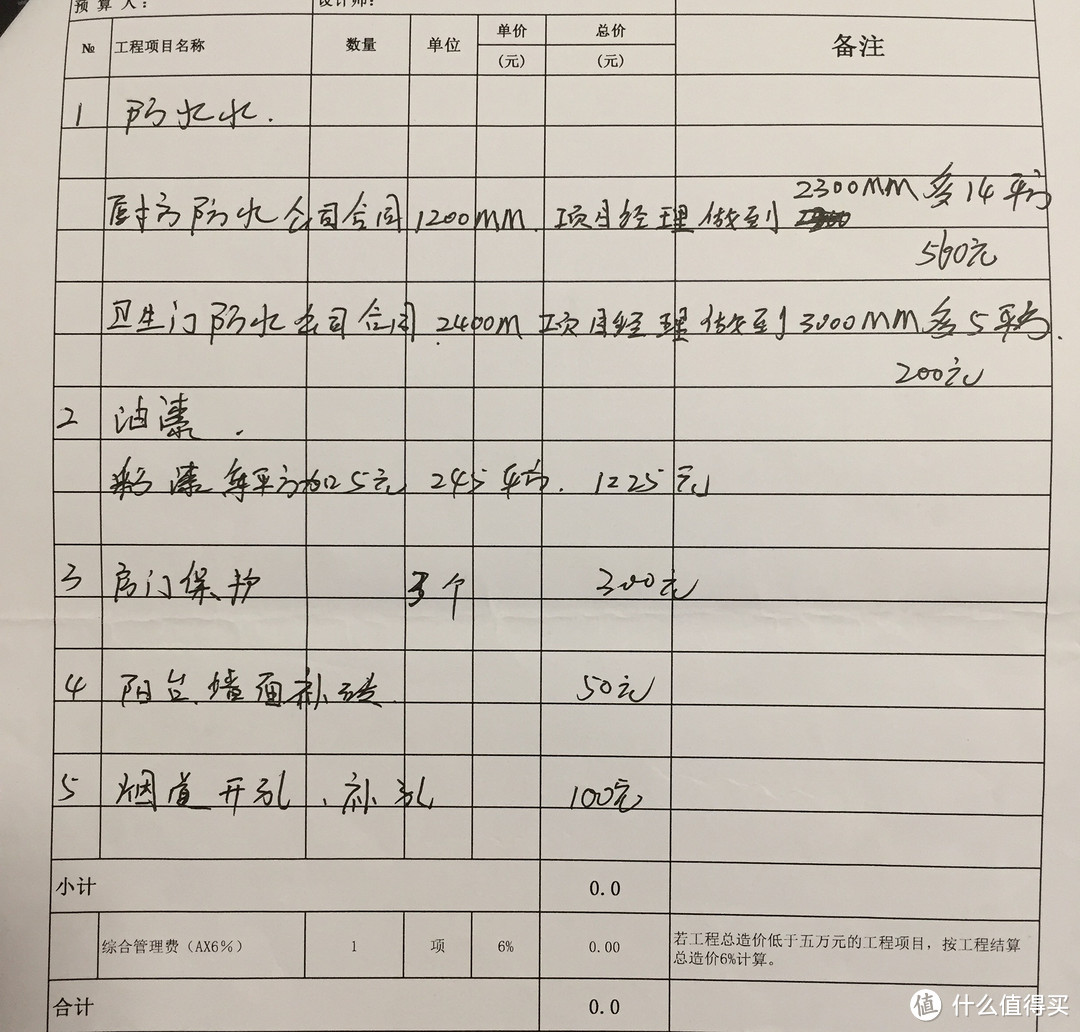 预 算 人： 设计师：
№ 工程项目名称 数量 单位 单价 总价 备注
(元) (元)
1 防水水.
2300MM 多14平方
厨房防水公司合同1200MM. 项目经理做到
560元
卫生门防水公司合同.2400M 项目经理做到3000MM多5平方.
200元
2 油漆.
漆每平方加25元 245平方. 1225元
3 房门保护 3个 300元
4 阳台.墙面补砖. 50元
5 烟道开孔、补孔 100元
小计 0.0
综合管理费（AX6%） 1 项 6% 0.00 若工程总造价低于五万元的工程项目，按工程结算
总造价6%计算。
合计 0.0
值 什么值得买